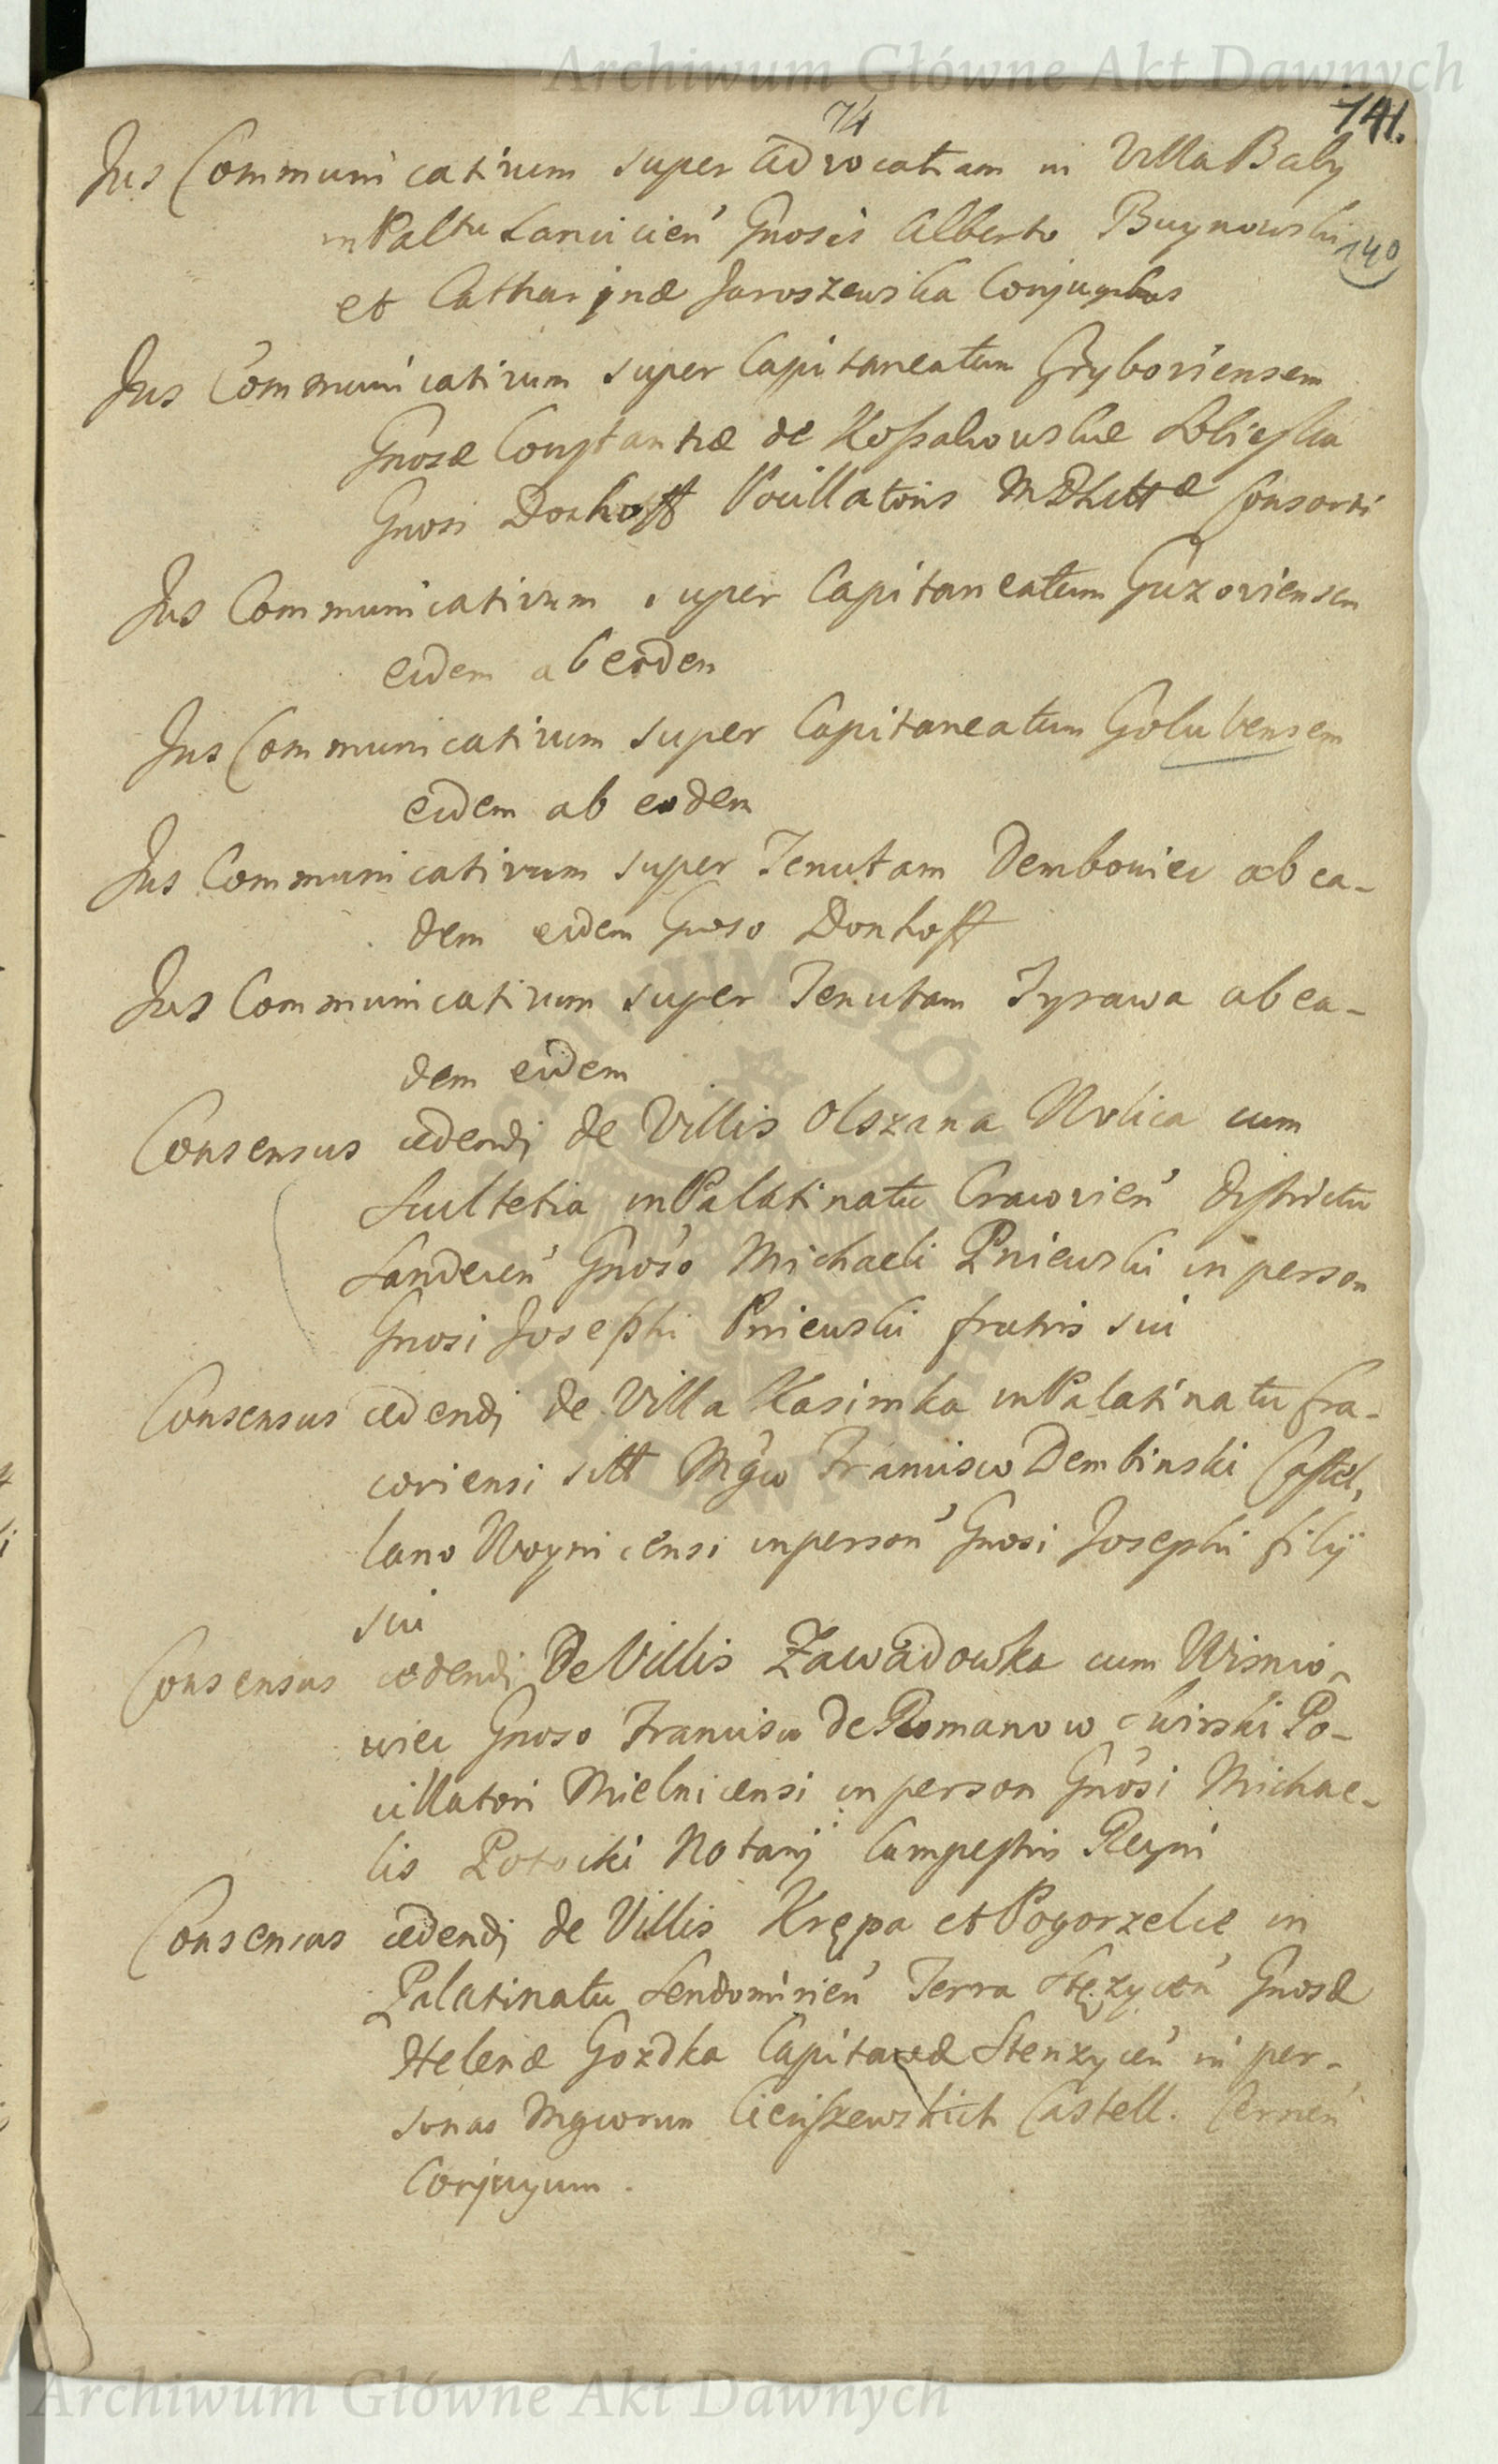 Archiwum Główne Akt Dawnych
74
141.
Jus Communicativum super advocatiam in Villa Baby
in Paltu Lancicień Gnosis Alberto Buynowski
140
et Catharinæ Jaroszewska Conjugibus
Jus Communicativum super Capitaneatum Gryboviensem
Gnosæ Constantiæ de Kossakowskie Sobieska
Gnosi Donhoff Pocillatoris MDLittæ Consorti
Jus Communicativum super Capitaneatum Guzoviensem
eidem ab eodem
Jus Communicativum super Capitaneatum Golubensem
eidem ab eodem
Jus Communicativum super Tenutam Dembowiec ab ea-
dem eidem Gnoso Donhoff
Jus Communicativum super Tenutam Tyrawa ab ea-
dem eidem
Consensus cedendi de Villis Olszana Wolica cum
Scultetia in Palatinatu Cracovień districtu
Sandecen Gnoso Michaeli Pniewski in person
Gnosi Josephi Pniewski fratris sui
Consensus cedendi de Villa Kasimka in Palatinatu Cra-
coviensi sitt Mgco Francisco Dembinski Castel,
lano Woynicensi in person Gnosi Josephi filij
sui
Consensus cedendi De Villis Zawadowka cum Wisnio-
wiec Gnoso Francisco de Romanow Swirski Po-
cillatori Mielnicensi in person Gnosi Michae-
lis Potocki Notarij Campestris Regni
Consensus cedendi de Villis Krępa et Pogorzelce in
Palatinatu Sendomirień Terra Stęzyceń Gnosæ
Helenæ Gozdka Capitaneæ Stenzyceń in per-
sonas Mgcorum Cieciszewskich Castell. Cernen
Conjugum.
Archiwum Główne Akt Dawnych